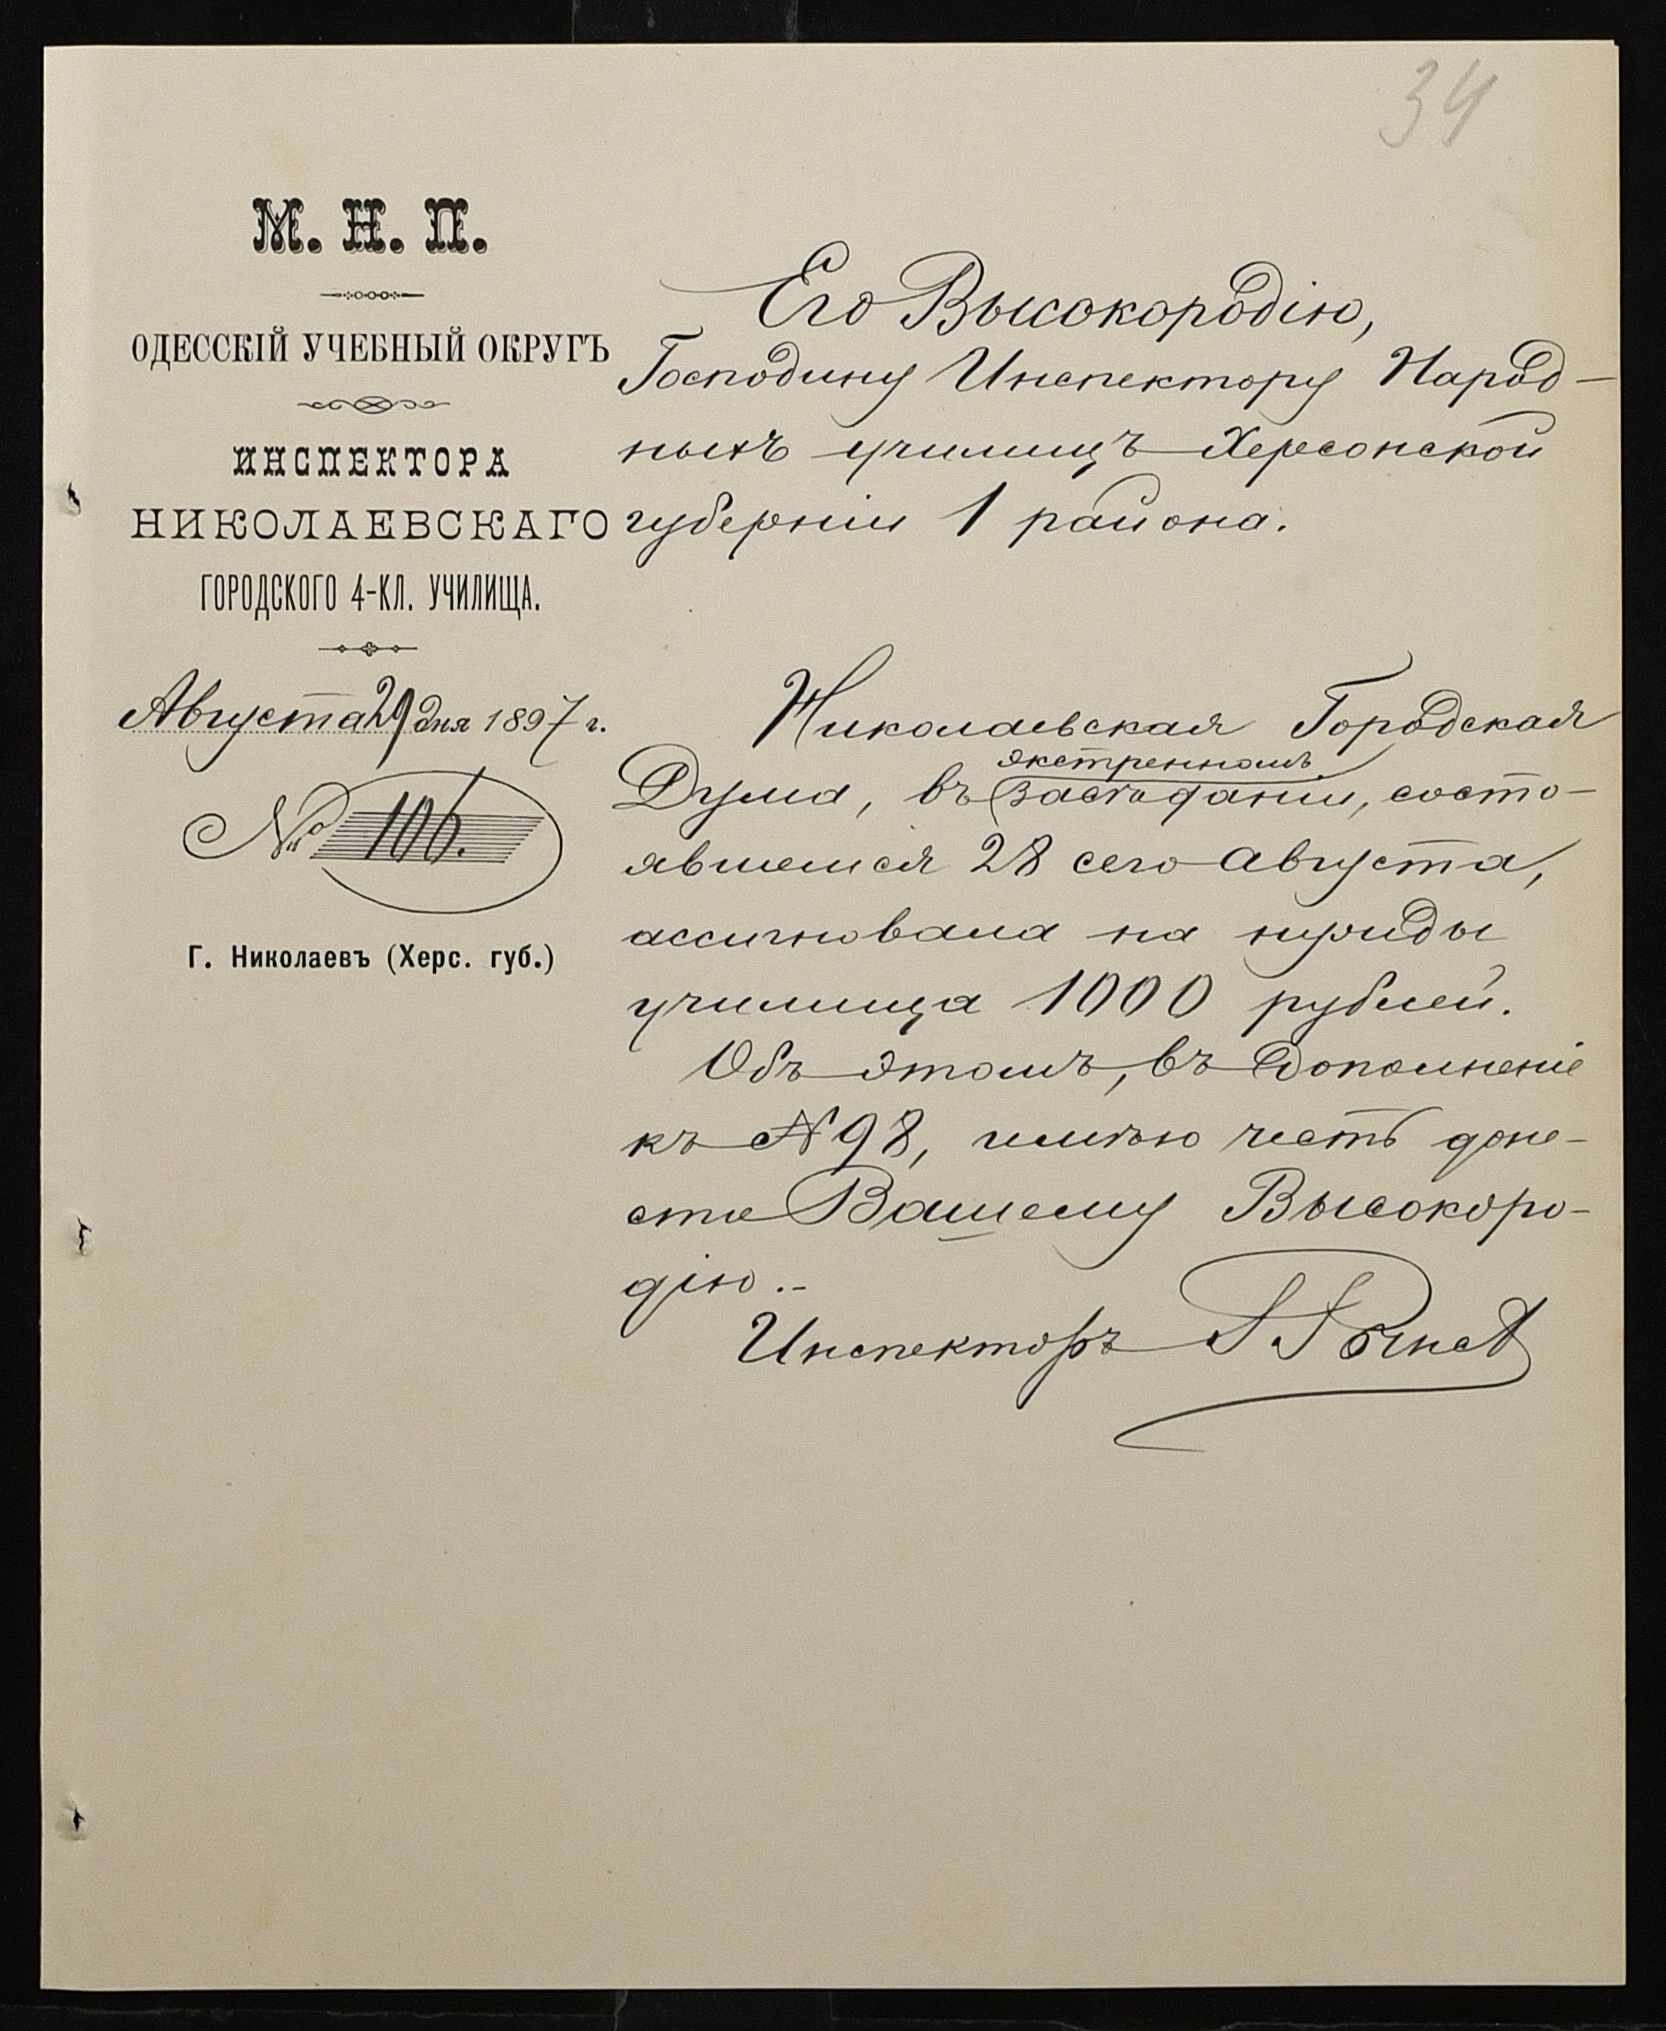 34
М. Н. П.
ОДЕССКІЙ УЧЕБНЫЙ ОКРУГЪ
ИНСПЕКТОРА
НИКОЛАЕВСКАГО
ГОРОДСКОГО 4-КЛ. УЧИЛИЩА.
Августа 29 дня 1897 г.
№ 106.
Г. Николаевъ (Херс. губ.)
Его Высокородію,
Господину Инспектору Народ-
ныхъ училищъ Херсонской
губерніи 1 района.
Николаевская Городская
экстренномъ
Дума, въ засѣданіи, состо-
явшемся 28 сего Августа,
ассигновала на нужды
училища 1000 рублей.
Объ этомъ, въ дополненіе
къ № 98, имѣю честь доне-
сти Вашему Высокоро-
дію.-
Инспекторъ